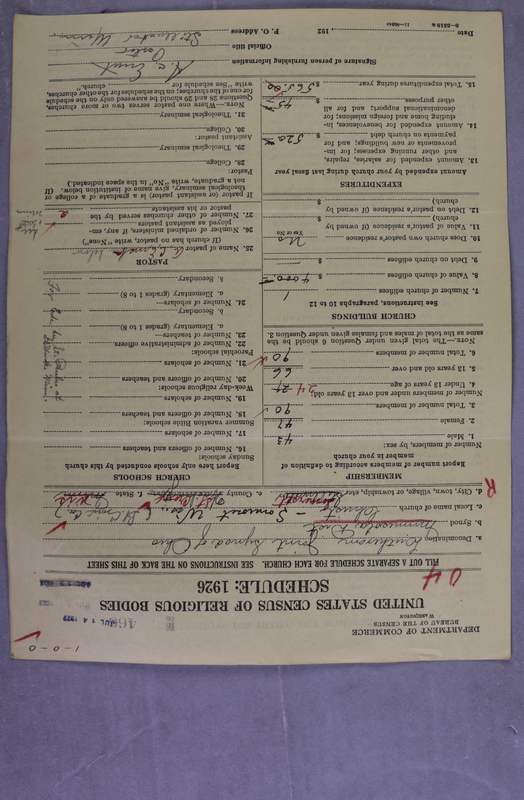 1-0-0
DEPARTMENT OF COMMERCE
BUREAU OF THE CENSUS
WASHINGTON
JUL 14 1927
UNITED STATES CENSUS OF RELIGIOUS BODIES
SCHEDULE: 1926
04
FILL OUT A SEPARATE SCHEDULE FOR EACH CHURCH. SEE INSTRUCTIONS ON THE BACK OF THIS SHEET
a. Denomination Lutheran Joint Synod of Ohio
b. Synod Minnesota
c. Local name of church Christ - Somerset Wis.
d. City, town, village, or township Somerset
e. County St. Croix
f. State
R
MEMBERSHIP
Report number of members according to definition of member in your church
Number of members, by sex:
1. Male 43
2. Female 47
3. Total number of members 90
Number of members under and over 13 years old:
4. Under 13 years of age 24
5. 13 years old and over 66
6. Total number of members 90
NOTE.—The total given under Question 6 should be the same as the total of males and females given under Question 3.
CHURCH BUILDINGS
See Instructions, paragraphs 10 to 12
7. Number of church edifices 1
8. Value of church edifices $ 4000.00
9. Debt on church edifices $
10. Does church own pastor's residence No
Yes or No
11. Value of pastor's residence (if owned by church) $
12. Debt on pastor's residence (if owned by church) $
EXPENDITURES
Amount expended by your church during last fiscal year
13. Amount expended for salaries, repairs, and other running expenses; for improvements or new buildings; and for payments on church debt $ 520
14. Amount expended for benevolences, including home and foreign missions; for denominational support; and for all other purposes $ 45
15. Total expenditures during year $ 565.00
CHURCH SCHOOLS
Report here only schools conducted by this church
Sunday schools:
16. Number of officers and teachers
17. Number of scholars
Summer vacation Bible schools:
18. Number of officers and teachers
19. Number of scholars
Week-day religious schools:
20. Number of officers and teachers
21. Number of scholars
Parochial schools:
22. Number of administrative officers
23. Number of teachers—
a. Elementary (grades 1 to 8)
b. Secondary
24. Number of scholars—
a. Elementary (grades 1 to 8)
b. Secondary
PASTOR
25. Name of pastor
(If church has no pastor, write "None")
26. Number of ordained ministers, if any, employed as assistant pastors
27. Number of other churches served by the pastor or his assistants
If pastor (or assistant pastor) is a graduate of a college or theological seminary, give name of institution below. (If not a graduate, write "No" in the space indicated.)
Pastor:
28. College
29. Theological seminary
Assistant pastor:
30. College
31. Theological seminary
NOTE.—Where one pastor serves two or more churches, Questions 28 and 29 should be answered only on the schedule for one of the churches; on the schedules for the other churches, write "See schedule for church."
Signature of person furnishing information
Official title Pastor
P. O. Address Stillwater
Date , 192
11-9264